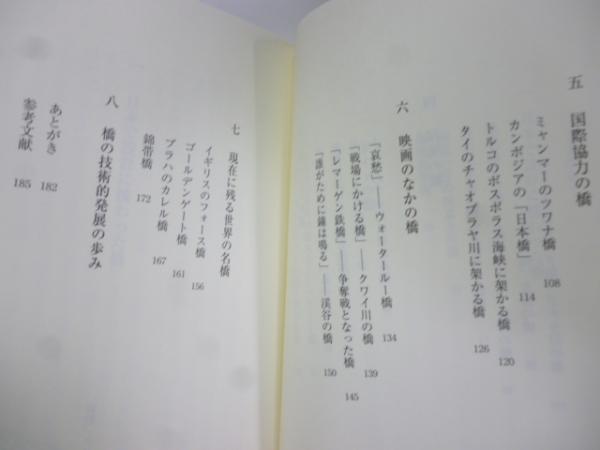 五 国際協力の橋
ミャンマーのツワナ橋 108
カンボジアの「日本橋」 114
トルコのボスポラス海峡に架かる橋 120
タイのチャオプラヤ川に架かる橋 126
六 映画のなかの橋
「哀愁」――ウォータールー橋 134
「戦場にかける橋」――クワイ川の橋 139
「レマーゲン鉄橋」――争奪戦となった橋 145
「誰がために鐘は鳴る」――渓谷の橋 150
七 現在に残る世界の名橋
イギリスのフォース橋 156
ゴールデンゲート橋 161
プラハのカレル橋 167
錦帯橋 172
八 橋の技術的発展の歩み
あとがき 182
参考文献 185